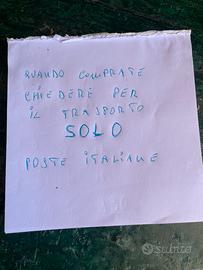 QUANDO COMPRATE
CHIEDERE PER
IL TRASPORTO
SOLO
POSTE ITALIANE
subito